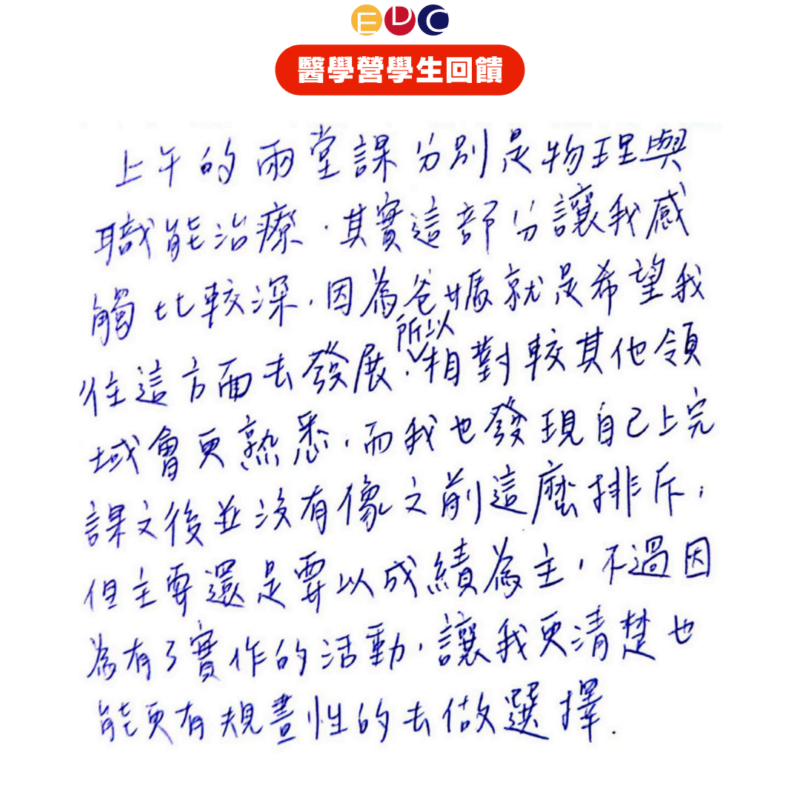 EDC
醫學營學生回饋
上午的兩堂課分別是物理與
職能治療,其實這部分讓我感
觸比較深,因為爸媽就是希望我
往這方面去發展,所以相對較其他領
域會更熟悉,而我也發現自己上完
課之後並沒有像之前這麼排斥,
但主要還是要以成績為主,不過因
為有了實作的活動,讓我更清楚也
能更有規畫性的去做選擇.